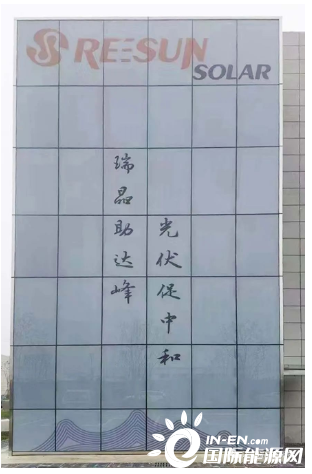 REESUN
SOLAR
瑞晶助达峰
光伏促中和
IN-EN.com
国际能源网